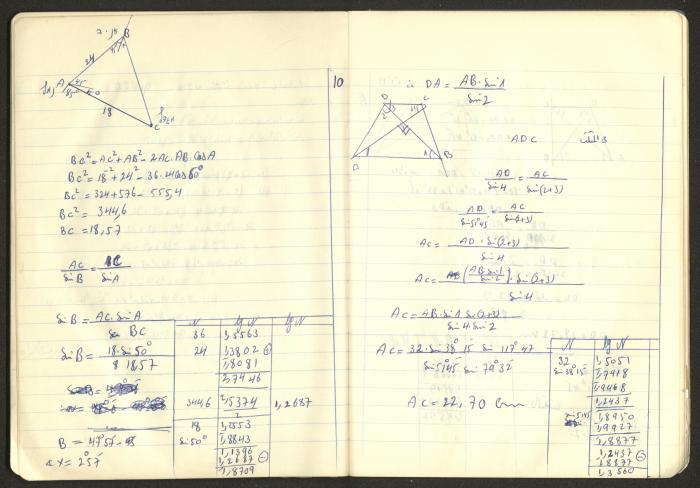 24
B
A
45°
18
C
BC² = AC² + AB² - 2AC.AB.CosA
BC² = 18² + 24² - 36.24Cos50°
BC² = 324 + 576 - 555,4
BC² = 344,6
BC = 18,57
AC/SinB = BC/SinA
SinB = AC.SinA / BC
SinB = 18.Sin50° / 18,57
N lg N lg N
36 1,5563
24 1,3802
1,8081
2,7446
344,6 2,5374 1,2687
2
18 1,2553
Sin50° 1,8843
1,1396
1,2687
1,8709
10
∴ DA = AB.Sin1 / Sin2
D C
A B
ADC
AD/Sin4 = AC/Sin(2+3)
AD/Sin51°45' = AC/Sin(2+3)
AC = AD.Sin(2+3) / Sin4
AC = (AB.Sin1/Sin2).Sin(2+3) / Sin4
AC = AB.Sin1 Sin(2+3) / Sin4 Sin2
AC = 32.Sin38°15' Sin117°47' / Sin51°45' Sin79°32'
AC = 22,70 Cm
N lg N
32 1,5051
Sin38°15' 1,7918
1,9468
1,2437
Sin51°45' 1,8950
1,9927
1,8877
1,2437
1,8877
1,3560